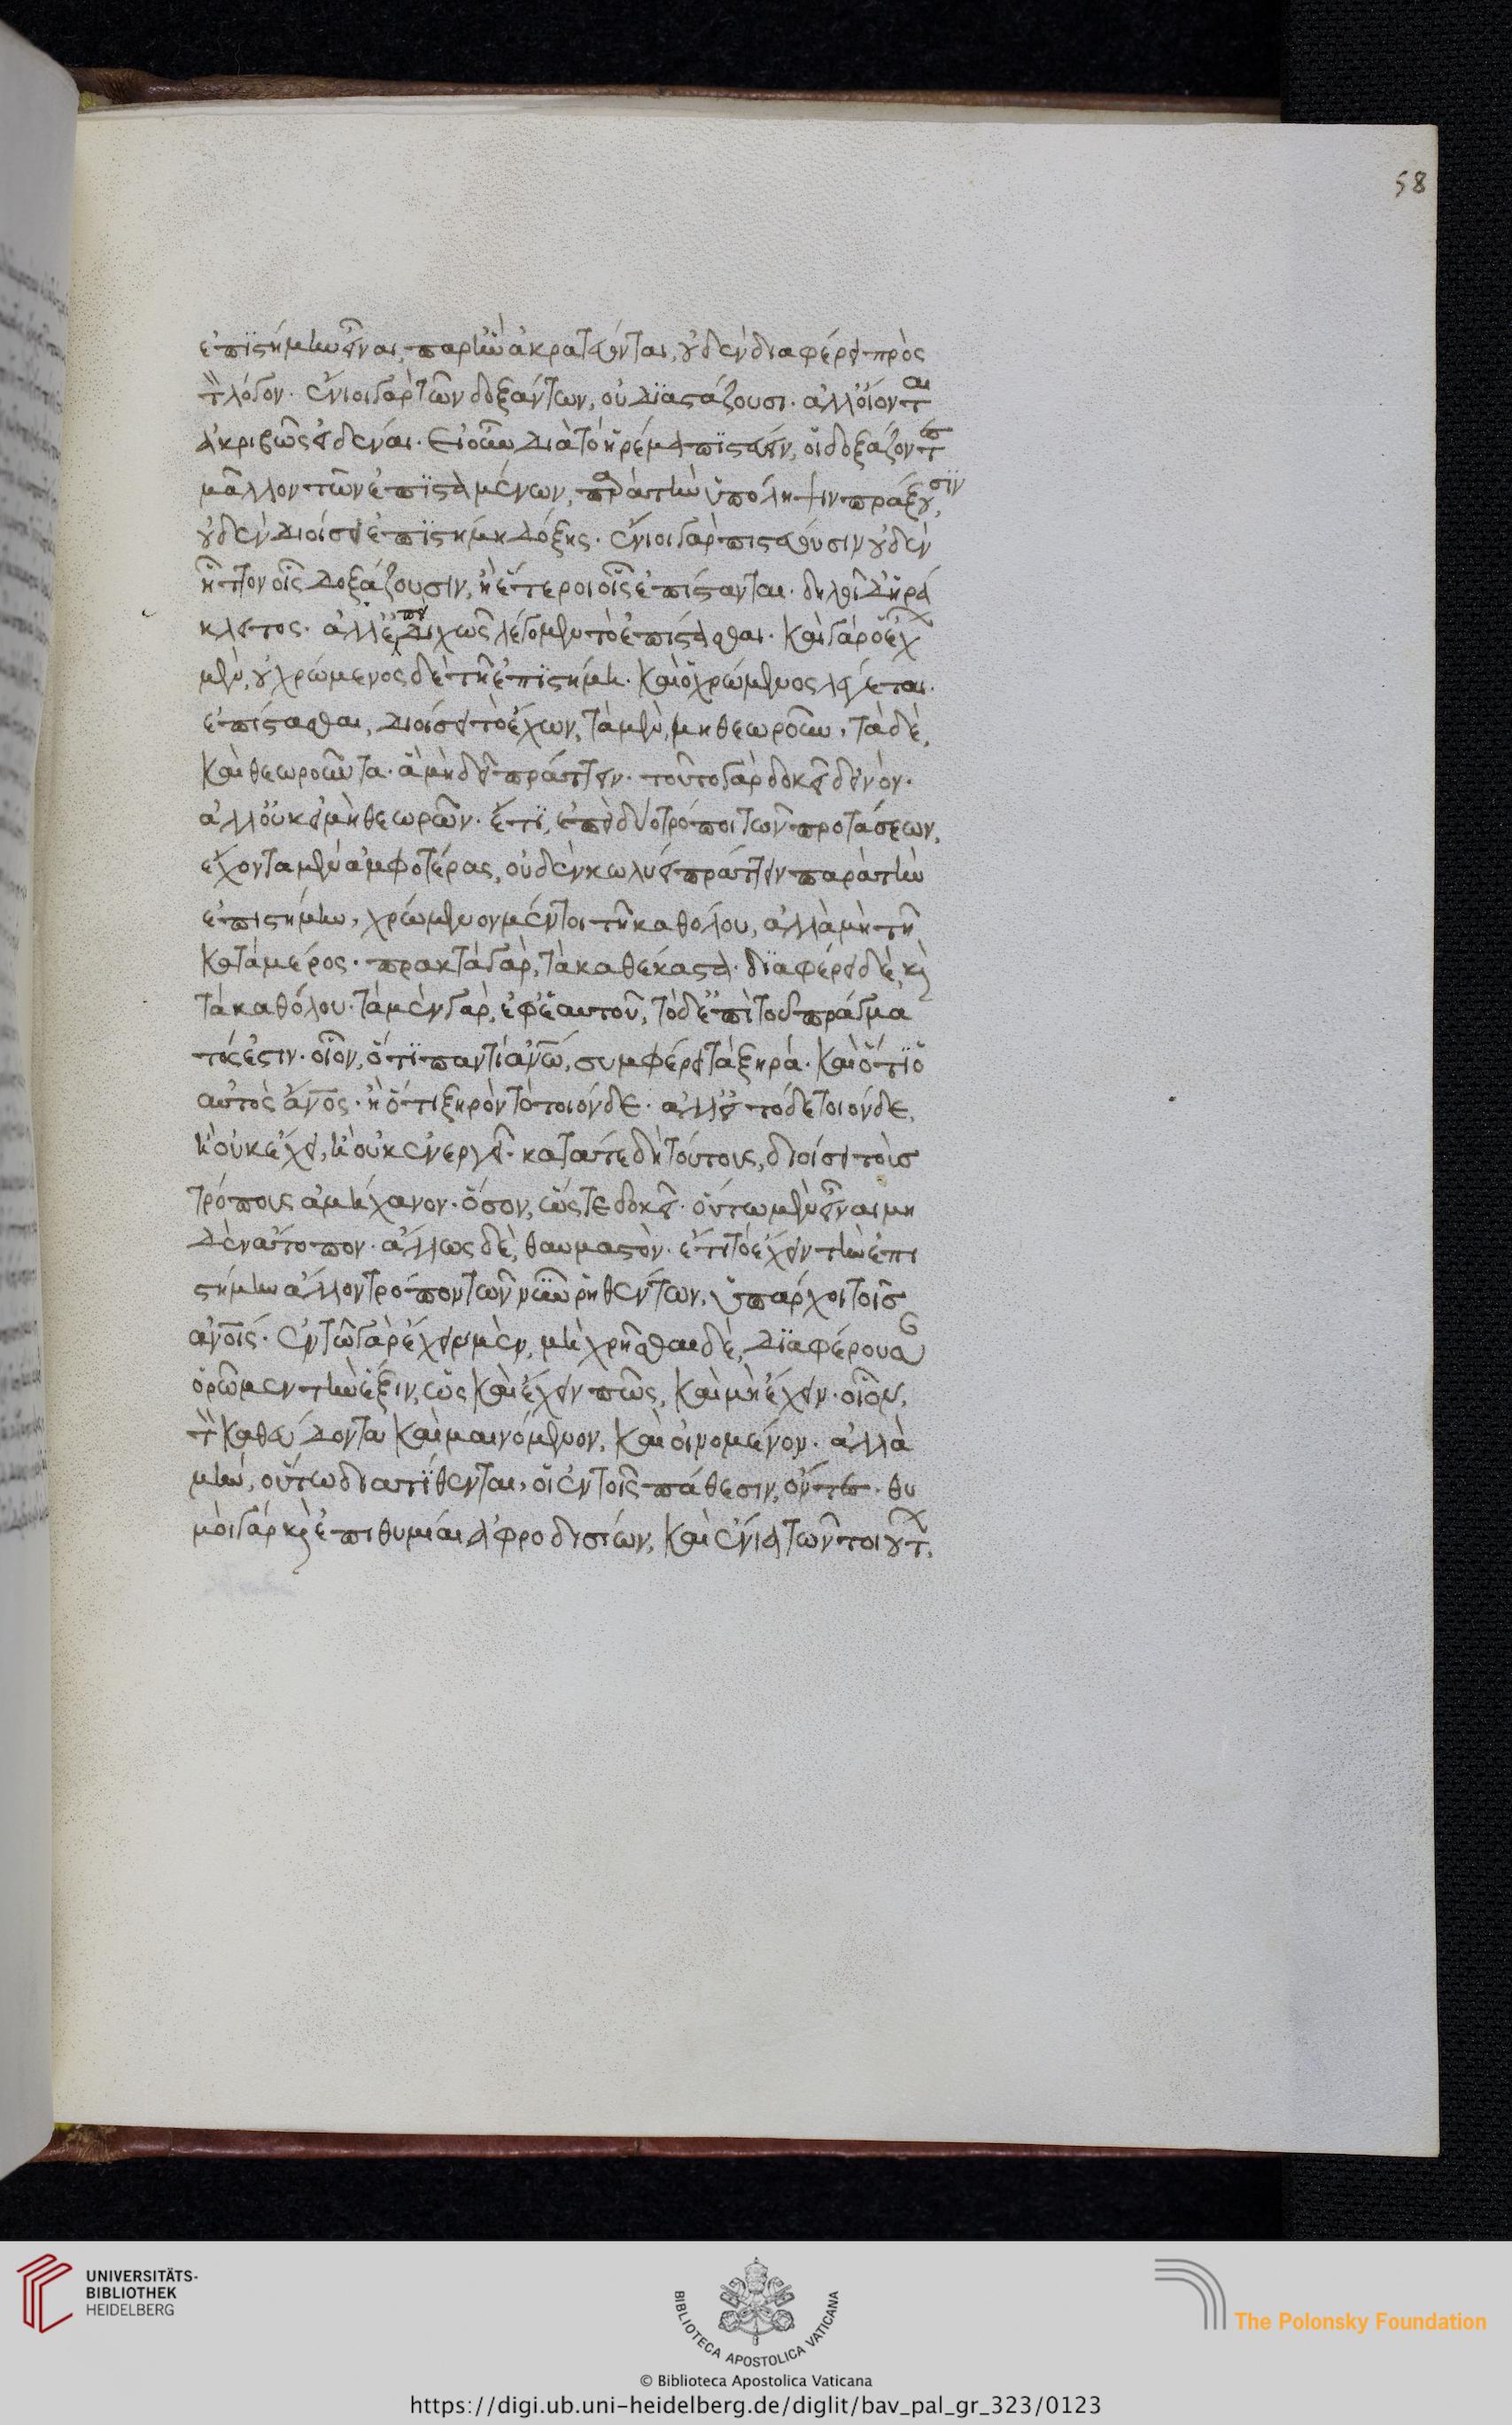 58
ἐπιστήμην εἶναι, παρ' ἣν ἀκρατεύονται, οὐδὲν διαφέρει πρὸς
τὸν λόγον. ἔνιοι γὰρ τῶν δοξάντων, οὐ διστάζουσι. ἀλλ' οἴονται
ἀκριβῶς εἰδέναι. εἰ οὖν διὰ τὸ ἠρέμα πιστεύειν, οἱ δοξάζοντες
μᾶλλον τῶν ἐπισταμένων, παρὰ τὴν ὑπόληψιν πράξουσιν,
οὐδὲν διοίσει ἐπιστήμη δόξης. ἔνιοι γὰρ πιστεύουσιν οὐδὲν
ἧττον οἷς δοξάζουσιν, ἢ ἕτεροι οἷς ἐπίστανται. δηλοῖ δ' Ἡρά
κλειτος. ἀλλ' ἐπεὶ διχῶς λέγομεν τὸ ἐπίστασθαι. καὶ γὰρ ὁ ἔχων
μὲν, οὐ χρώμενος δὲ τῇ ἐπιστήμῃ. καὶ ὁ χρώμενος λέγεται
ἐπίστασθαι, διοίσει τὸ ἔχων, τὰ μὲν, μὴ θεωροῦν, τὰ δὲ,
καὶ θεωροῦντα. ἃ μὴ δεῖ πράττειν. τοῦτο γὰρ δοκεῖ δεινόν.
ἀλλ' οὐκ εἰ μὴ θεωρῶν. ἔτι, ἐπεὶ δύο τρόποι τῶν προτάσεων,
ἔχοντα μὲν ἀμφοτέρας, οὐδὲν κωλύει πράττειν παρὰ τὴν
ἐπιστήμην, χρώμενον μέντοι τῇ καθόλου, ἀλλὰ μὴ τῇ
κατὰ μέρος. πρακτὰ γὰρ, τὰ καθέκαστα. διαφέρει δὲ, καὶ
τὰ καθόλου. τὰ μὲν γὰρ, ἐφ' ἑαυτοῦ, τὸ δ' ἐπὶ τοῦ πράγμα
τός ἐστιν. οἷον, ὅτι παντὶ ἀνῶ, συμφέρει τὰ ξηρά. καὶ ὅτι ὁ
αὐτὸς ἄνος. ἢ ὅτι ξηρὸν τὸ τοιόνδε. ἀλλ' εἰ τόδε τοιόνδε,
ἢ οὐκ ἔχει, ἢ οὐκ ἐνεργεῖ. κατά τε δὴ τούτους, διοίσει τοὺς
τρόπους ἀμήχανον. ὅσον, ὥστε δοκεῖ. οὕτω μὲν εἶναι μη
δὲν ἄτοπον. ἄλλως δὲ, θαυμαστόν. ἔτι τὸ ἔχειν τὴν ἐπι
στήμην ἄλλον τρόπον τῶν νῦν ῥηθέντων, ὑπάρχοι τοῖς
ἀνοις. ἐν τῷ γὰρ ἔχειν μὲν, μὴ χρῆσθαι δὲ, διαφέρουσαν
ὁρῶμεν τὴν ἕξιν, ὡς καὶ ἔχειν πῶς, καὶ μὴ ἔχειν. οἷον,
τὸν καθεύδοντα καὶ μαινόμενον, καὶ οἰνομένον. ἀλλὰ
μὴν, οὕτω διατίθενται, οἱ ἐν τοῖς πάθεσιν, ὄντες. θυ
μοὶ γὰρ καὶ ἐπιθυμίαι ἀφροδισίων, καὶ ἔνια τῶν τοιούτων,
UNIVERSITÄTS-
BIBLIOTHEK
HEIDELBERG
BIBLIOTECA APOSTOLICA VATICANA
The Polonsky Foundation
© Biblioteca Apostolica Vaticana
https://digi.ub.uni-heidelberg.de/diglit/bav_pal_gr_323/0123